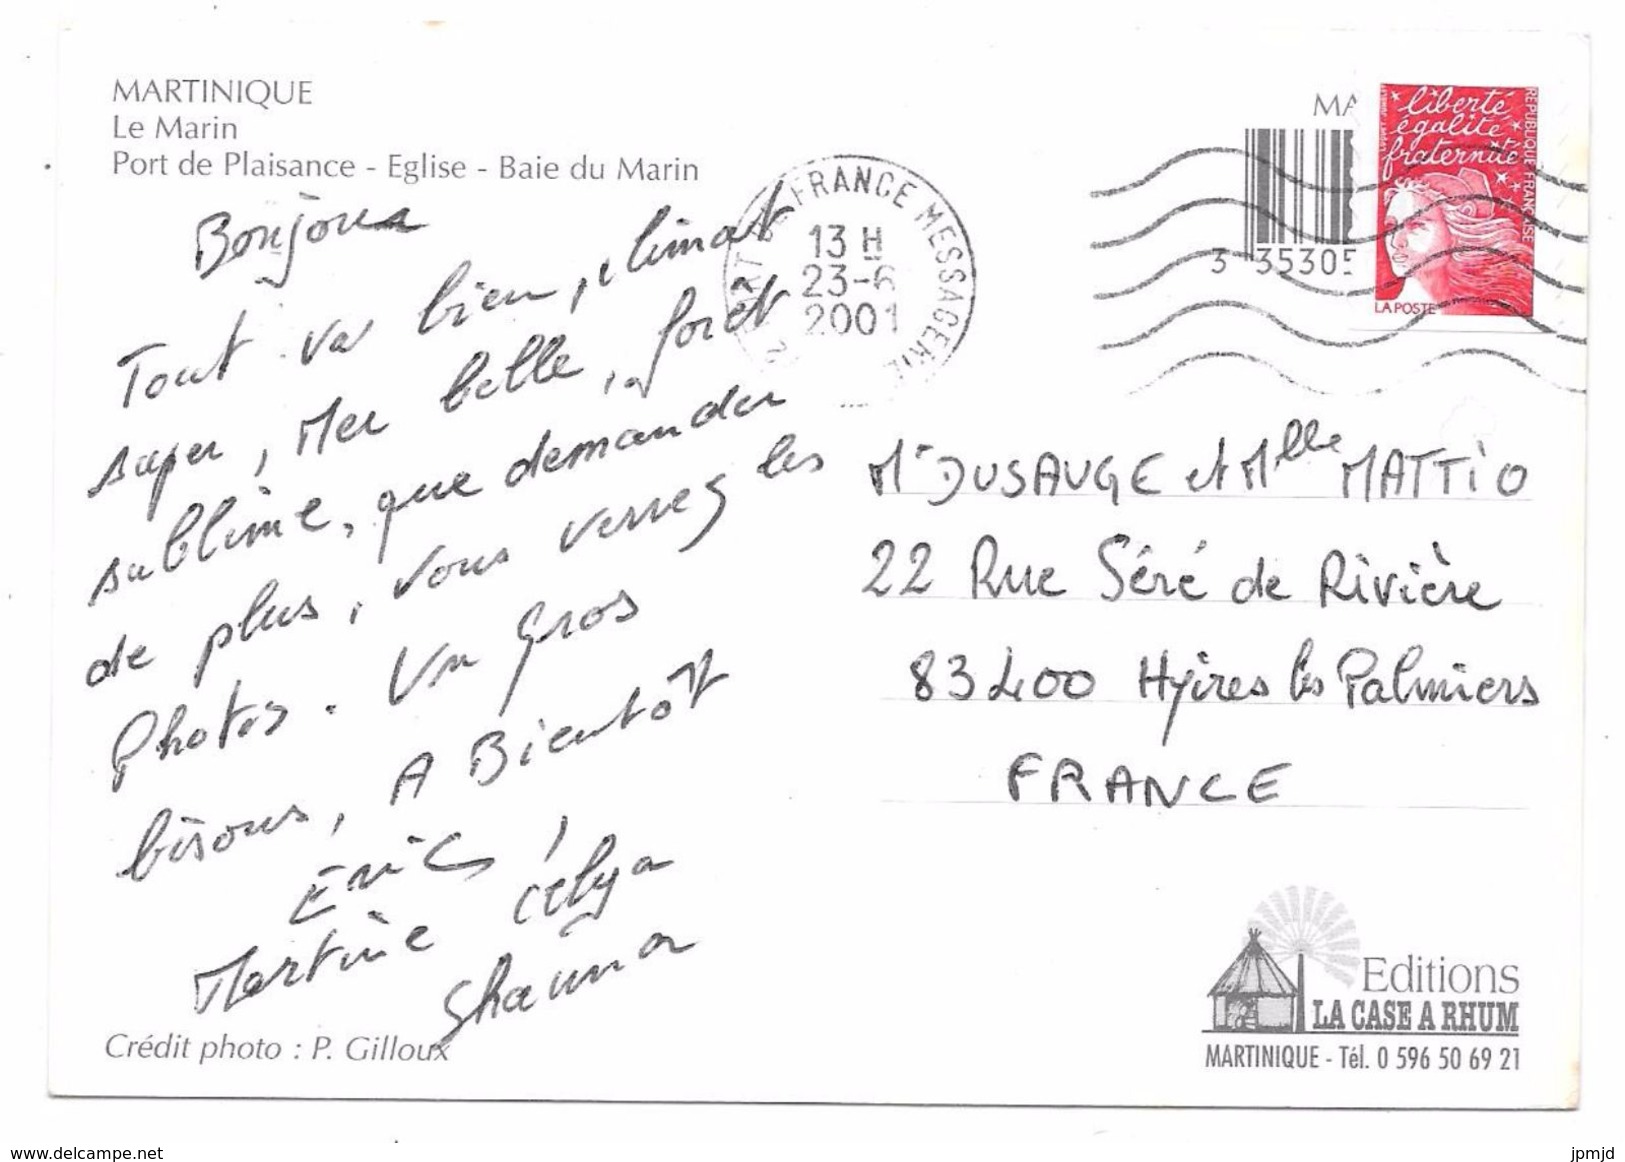 MARTINIQUE
Le Marin
Port de Plaisance - Eglise - Baie du Marin
Bonjour
Tout va bien, climat
super, Mer belle, forêt
sublime, que demander
de plus, vous verrez les
Photos. Un gros
bisous, A Bientôt
Eric,
Martine Célya
Shaïma
Crédit photo : P. Gilloux
FRANCE MESSAGERIE
13 H
23-6
2001
MA
3 35305
liberté
égalité
fraternité
REPUBLIQUE FRANÇAISE
LA POSTE
Mr DUSAUGE et Mlle MATTiO
22 Rue Séré de Rivière
83400 Hyères les Palmiers
FRANCE
Editions
LA CASE A RHUM
MARTINIQUE - Tél. 0 596 50 69 21
www.delcampe.net
jpmjd